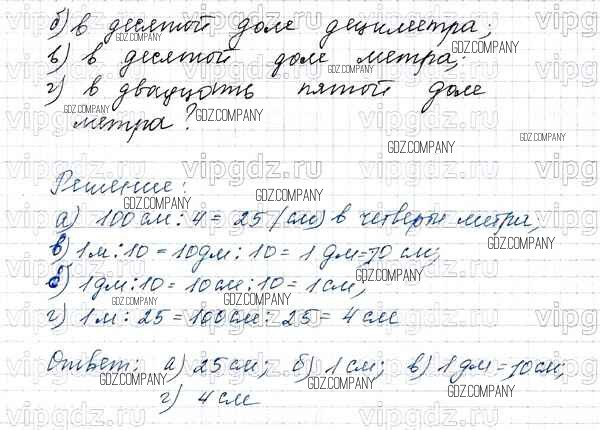 б) в десятой доле дециметра;
в) в десятой доле метра;
г) в двадцать пятой доле
метра?
Решение:
а) 100 см : 4 = 25 (см) в четверти метра;
в) 1 м : 10 = 10 дм : 10 = 1 дм = 10 см;
б) 1 дм : 10 = 10 см : 10 = 1 см;
г) 1 м : 25 = 100 см : 25 = 4 см
Ответ: а) 25 см; б) 1 см; в) 1 дм = 10 см;
г) 4 см
vipgdz.ru
GDZ.COMPANY